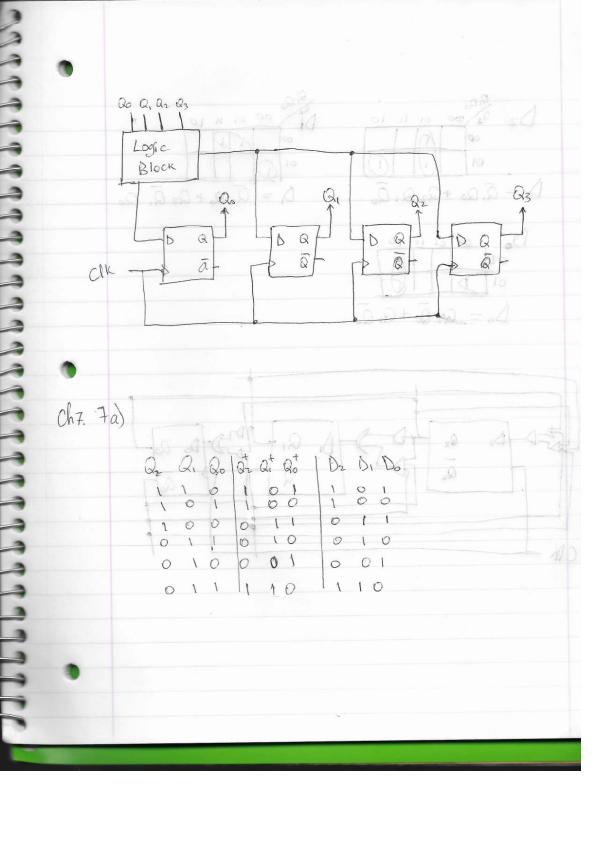 Q0 Q1 Q2 Q3
Logic
Block
Q0 Q1 Q2 Q3
D Q D Q D Q D Q
Clk Q̅ Q̅ Q̅ Q̅
Ch7. 7a)
Q2 Q1 Q0 Q2+ Q1+ Q0+ D2 D1 D0
1 1 0 1 0 1 1 0 1
1 0 1 1 0 0 1 0 0
1 0 0 0 1 1 0 1 1
0 1 1 0 1 0 0 1 0
0 1 0 0 0 1 0 0 1
0 1 1 1 1 0 1 1 0